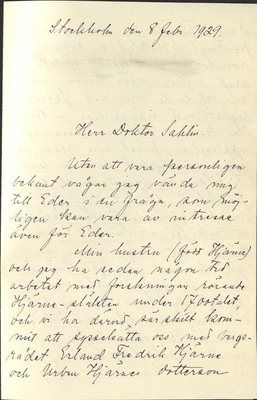 Stockholm den 8 febr. 1929.
Herr Doktor Sahlin.
Utan att vara personligen
bekant vågar jag vända mig
till Eder i en fråga, som möj-
ligen kan vara av intresse
även för Eder.
Min hustru (född Hjärne)
och jag ha sedan någon tid
arbetat med forskningar rörande
Hjärne-släkten under 1700talet,
och vi ha därvid särskilt kom-
mit att sysselsätta oss med bergs-
rådet Erland Fredrik Hjärne
och Urban Hjärnes dotterson